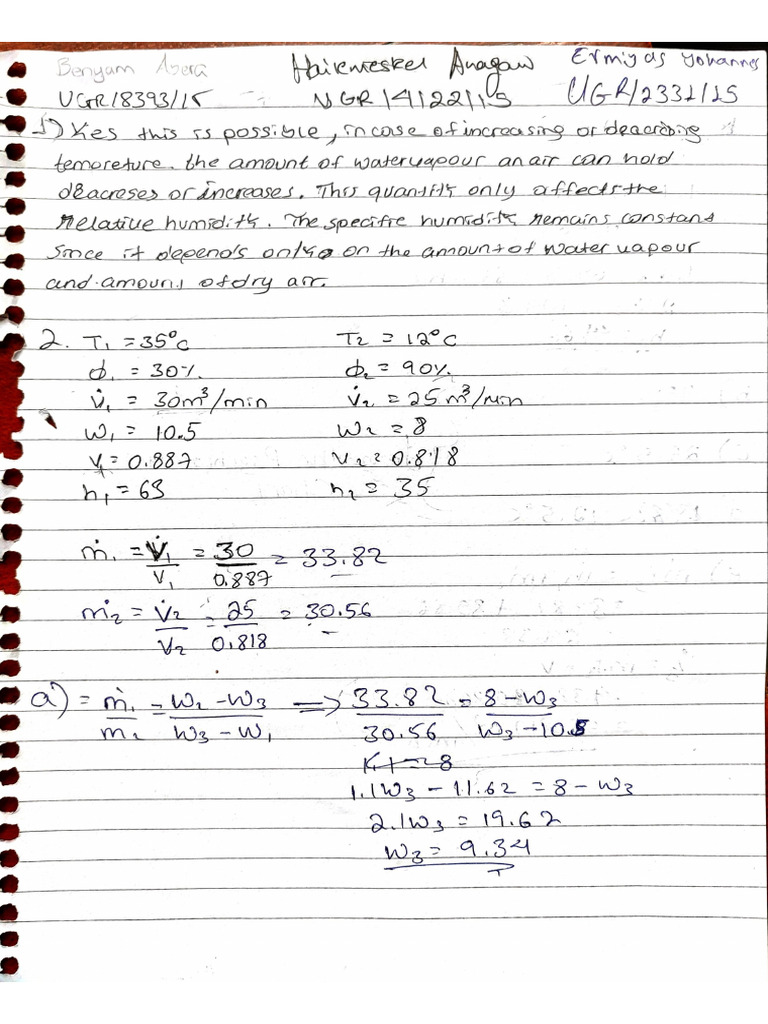 Benyam Abera Hailemeskel Anagaw Ermiyas Yohannes
UGR/8393/15 UGR/4122/15 UGR/2331/15
1) Yes this is possible, in case of increasing or deacrebing
temoreture. the amount of water vapour an air can hold
deacreses or increases. This quantity only affects the
relative humidity. The specific humidity remains constant
Since it depends only on the amount of water vapour
and amount of dry air.
2. T₁ = 35°C T₂ = 12°C
ϕ₁ = 30% ϕ₂ = 90%
V̇₁ = 30m³/min V̇₂ = 25m³/min
w₁ = 10.5 w₂ = 8
v₁ = 0.887 v₂ = 0.818
h₁ = 63 h₂ = 35
ṁ₁ = V̇₁/v₁ = 30/0.887 = 33.82
ṁ₂ = V̇₂/v₂ = 25/0.818 = 30.56
a) = ṁ₁/ṁ₂ = w₂ - w₃/w₃ - w₁ => 33.82/30.56 = 8 - w₃/w₃ - 10.5
1.1w₃ - 11.62 = 8 - w₃
2.1w₃ = 19.62
w₃ = 9.34